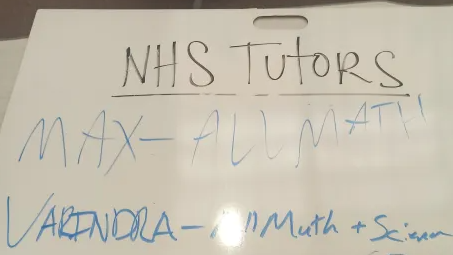 NHS TUTORS
MAX- ALL MATH
VARINDRA - All Math + Science